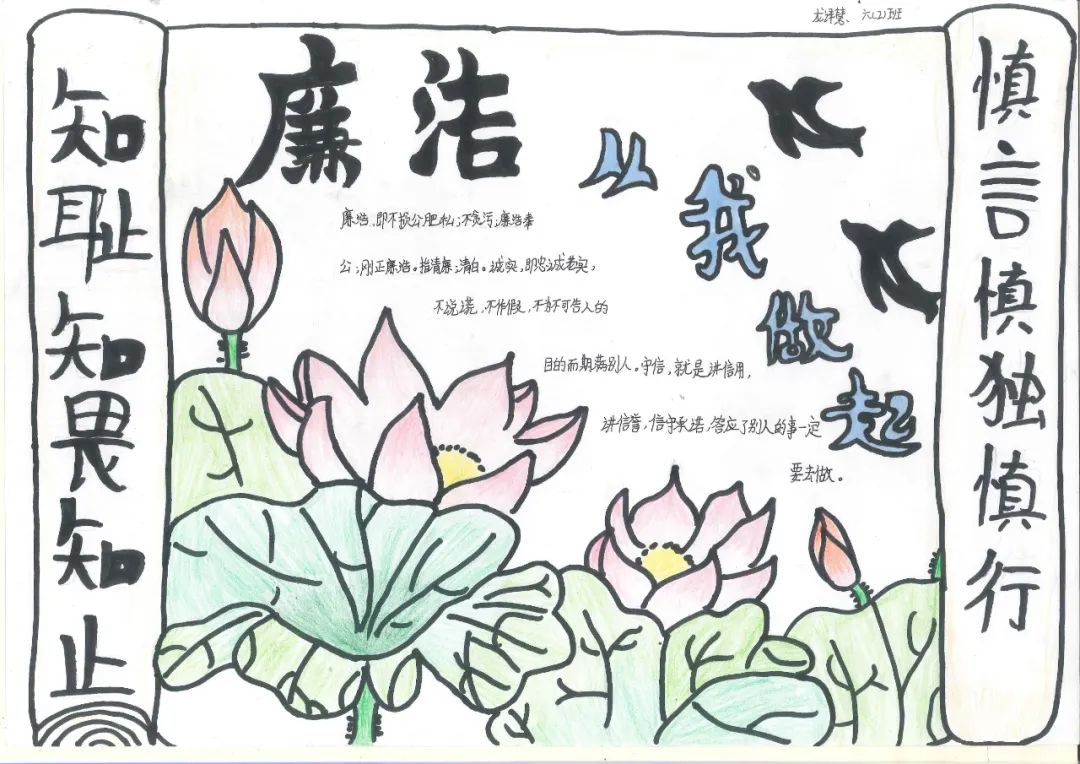 六(2)班
知耻知畏知止
廉洁
从我做起
廉洁、即不损公肥私；不贪污；廉洁奉
公；刚正廉洁。指清廉；清白。诚实，即忠诚老实，
不说谎，不作假，不为不可告人的
目的而欺瞒别人。守信，就是讲信用，
讲信誉，信守承诺，答应了别人的事一定
要去做。
慎言慎独慎行